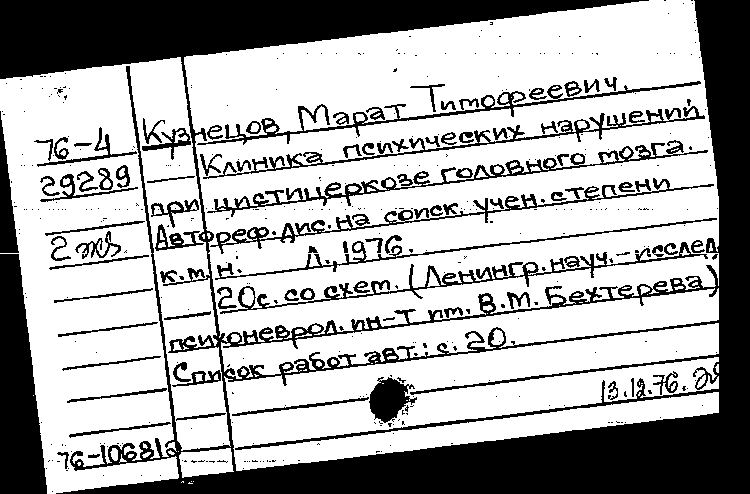 76-4 Кузнецов, Марат Тимофеевич.
29289 Клиника психических нарушений
при цистицеркозе головного мозга.
2 экз Автореф. дис. на соиск. учен. степени
к.м.н. Л., 1976.
20с. со схем. (Ленингр. науч.-исслед.
психоневрол. ин-т им. В.М. Бехтерева)
Список работ авт.: с. 20.
13.12.76.
76-10681а